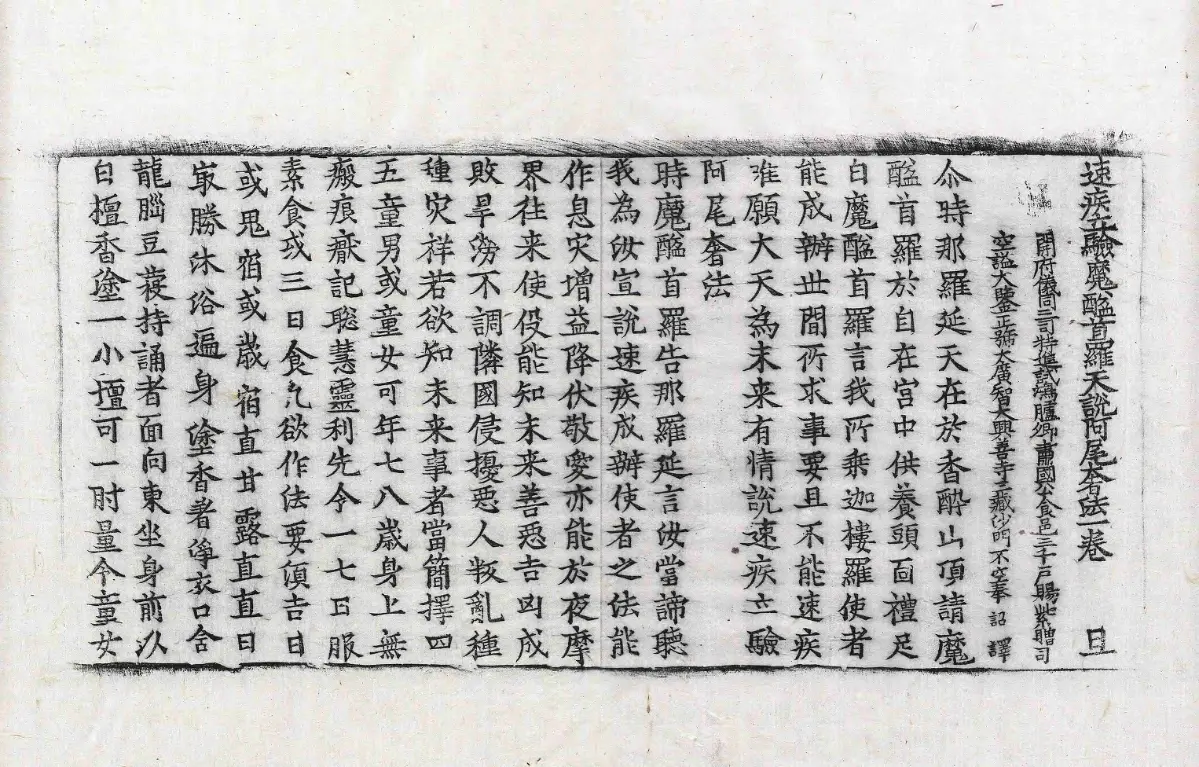 速疾立驗魔醯首羅天說阿尾奢法一卷 旦
開府儀同三司特進試鴻臚卿肅國公食邑三千戶賜紫贈司
空謚大鑒正號大廣智大興善寺三藏沙門不空奉 詔 譯
尒時那羅延天在於香醉山頂請魔
醯首羅於自在宮中供養頭面禮足
白魔醯首羅言我所乘迦樓羅使者
能成辦世間所求事要且不能速疾
唯願大天為末來有情說速疾立驗
阿尾奢法
時魔醯首羅告那羅延言汝當諦聽
我為汝宣說速疾成辦使者之法能
作息灾增益降伏敬愛亦能於夜摩
界往来使役能知未来善惡吉凶成
敗旱澇不調隣國侵擾惡人叛亂種
種灾祥若欲知未来事者當簡擇四
五童男或童女可年七八歲身上無
瘢痕黶記聡慧靈利先令一七日服
素食或三日食凢欲作法要湏吉日
或鬼宿或嵗宿直甘露直直日
㝡勝沐浴遍身塗香著淨衣口含
龍腦豆蔲持誦者面向東坐身前以
白檀香塗一小壇可一肘量令童女